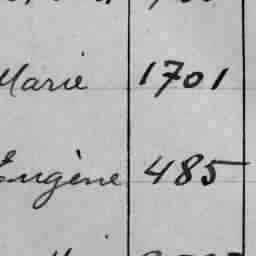 Marie 1701
Eugène 485